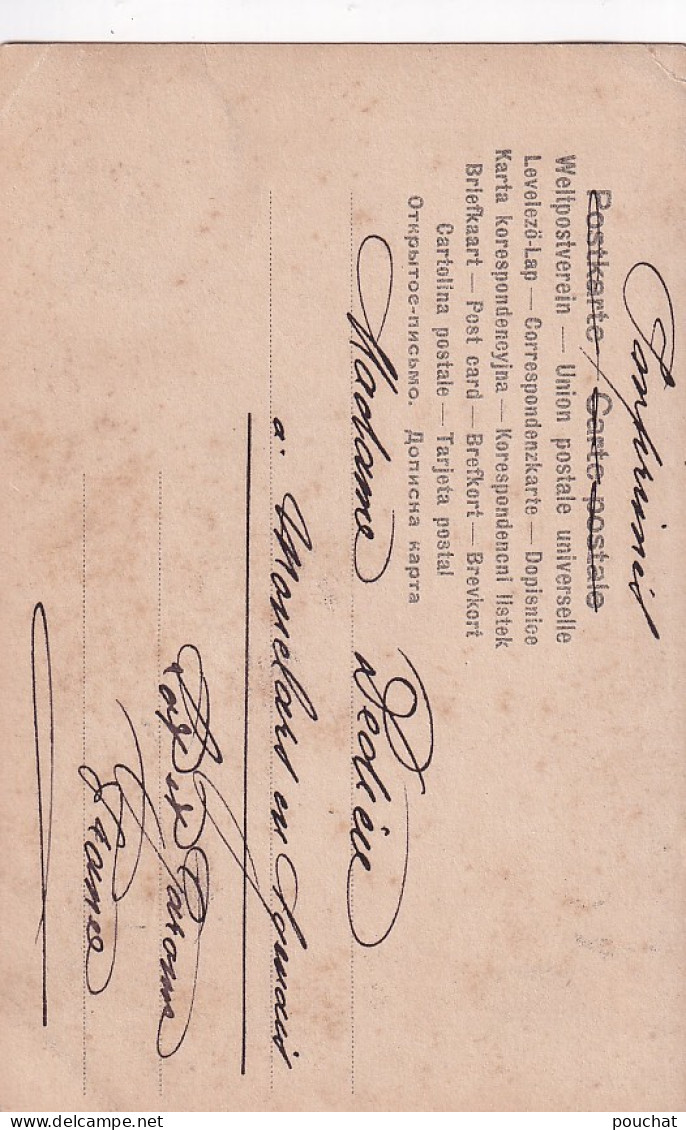 Imprimés
Postkarte — Carte postale
Weltpostverein — Union postale universelle
Levelező-Lap — Correspondenzkarte — Dopisnice
Karta korespondencyjna — Korespondencni listek
Briefkaart — Post card — Brefkort — Brevkort
Cartolina postale — Tarjeta postal
Открытое-письмо. Дописна карта
Madame
à Monclars en
Lot et Garonne
France
pouchat